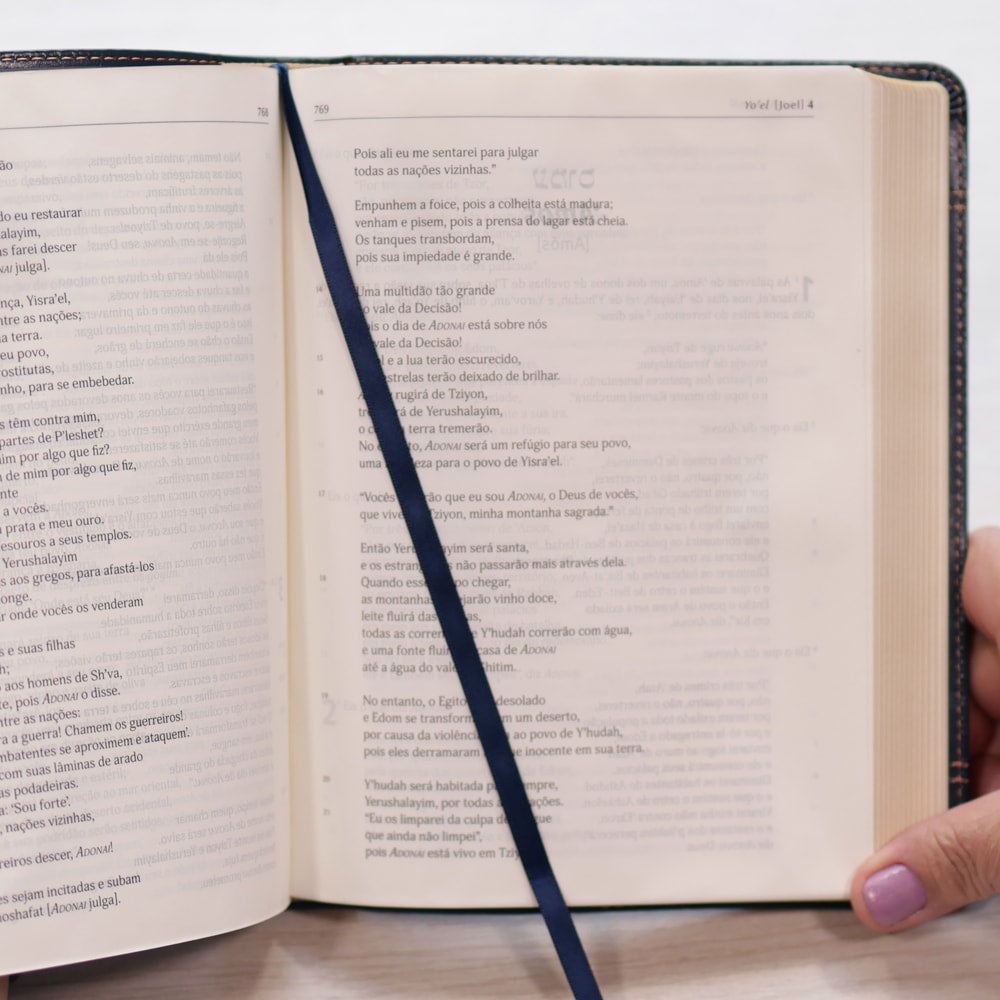 768
ão
do eu restaurar
alayim,
as farei descer
julga].
nça, Yisra'el,
ntre as nações;
a terra.
eu povo,
rostitutas,
nho, para se embebedar.
s têm contra mim,
partes de P'leshet?
im por algo que fiz?
de mim por algo que fiz,
nte
a vocês.
prata e meu ouro.
esouros a seus templos.
Yerushalayim
s aos gregos, para afastá-los
onge.
r onde vocês os venderam
s e suas filhas
h;
aos homens de Sh'va,
te, pois ADONAI o disse.
ntre as nações:
a a guerra! Chamem os guerreiros!
mbatentes se aproximem e ataquem'.
com suas lâminas de arado
as podadeiras.
a: 'Sou forte'.
, nações vizinhas,
reiros descer, ADONAI!
es sejam incitadas e subam
hoshafat [ADONAI julga].
769
Yo'el [Joel] 4
Pois ali eu me sentarei para julgar
todas as nações vizinhas.”
Empunhem a foice, pois a colheita está madura;
venham e pisem, pois a prensa do lagar está cheia.
Os tanques transbordam,
pois sua impiedade é grande.
14 Uma multidão tão grande
o vale da Decisão!
is o dia de ADONAI está sobre nós
vale da Decisão!
15 l e a lua terão escurecido,
estrelas terão deixado de brilhar.
16 rugirá de Tziyon,
rá de Yerushalayim,
o c terra tremerão.
No to, ADONAI será um refúgio para seu povo,
uma eza para o povo de Yisra'el.
17 “Vocês rão que eu sou ADONAI, o Deus de vocês,
que vive Tziyon, minha montanha sagrada.”
Então Yeru ayim será santa,
e os estran s não passarão mais através dela.
18 Quando ess po chegar,
as montanha ejarão vinho doce,
leite fluirá das as,
todas as corren Y'hudah correrão com água,
e uma fonte flui casa de ADONAI
até a água do vale Shitim.
19 No entanto, o Egito desolado
e Edom se transform m um deserto,
por causa da violênci ao povo de Y'hudah,
pois eles derramaram ue inocente em sua terra.
20 Y'hudah será habitada p mpre,
Yerushalayim, por todas a ações.
21 “Eu os limparei da culpa d gue
que ainda não limpei”,
pois ADONAI está vivo em Tziy